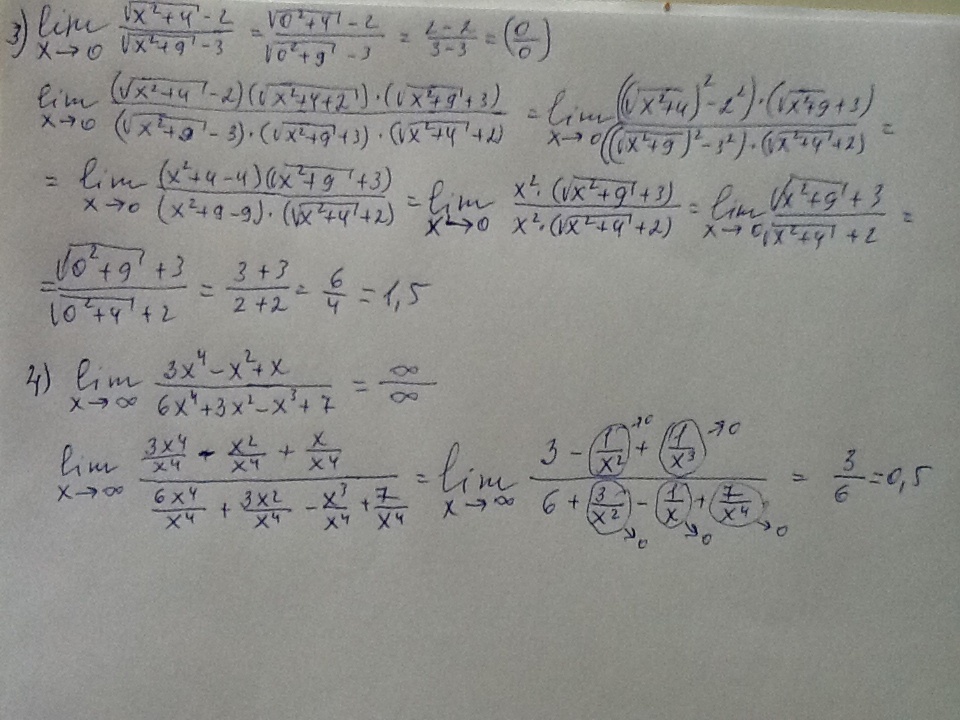 3) lim x→0 (√(x²+4) - 2)/(√(x²+9) - 3) = (√(0²+4) - 2)/(√(0²+9) - 3) = (2-2)/(3-3) = (0/0)
lim x→0 ((√(x²+4) - 2)(√(x²+4+2))·(√(x²+9) + 3))/((√(x²+9) - 3)·(√(x²+9) + 3)·(√(x²+4) + 2)) = lim x→0 (((√(x²+4))² - 2²)·(√(x²+9) + 3))/(((√(x²+9))² - 3²)·(√(x²+4) + 2)) =
= lim x→0 ((x²+4-4)(√(x²+9) + 3))/((x²+9-9)·(√(x²+4) + 2)) = lim x→0 (x²·(√(x²+9) + 3))/(x²·(√(x²+4) + 2)) = lim x→0 (√(x²+9) + 3)/(√(x²+4) + 2) =
= (√(0²+9) + 3)/(√(0²+4) + 2) = (3+3)/(2+2) = 6/4 = 1,5
4) lim x→∞ (3x⁴ - x² + x)/(6x⁴ + 3x² - x³ + 7) = ∞/∞
lim x→∞ (3x⁴/x⁴ - x²/x⁴ + x/x⁴)/(6x⁴/x⁴ + 3x²/x⁴ - x³/x⁴ + 7/x⁴) = lim x→∞ (3 - (1/x²)→0 + (1/x³)→0)/(6 + (3/x²)→0 - (1/x)→0 + (7/x⁴)→0) = 3/6 = 0,5